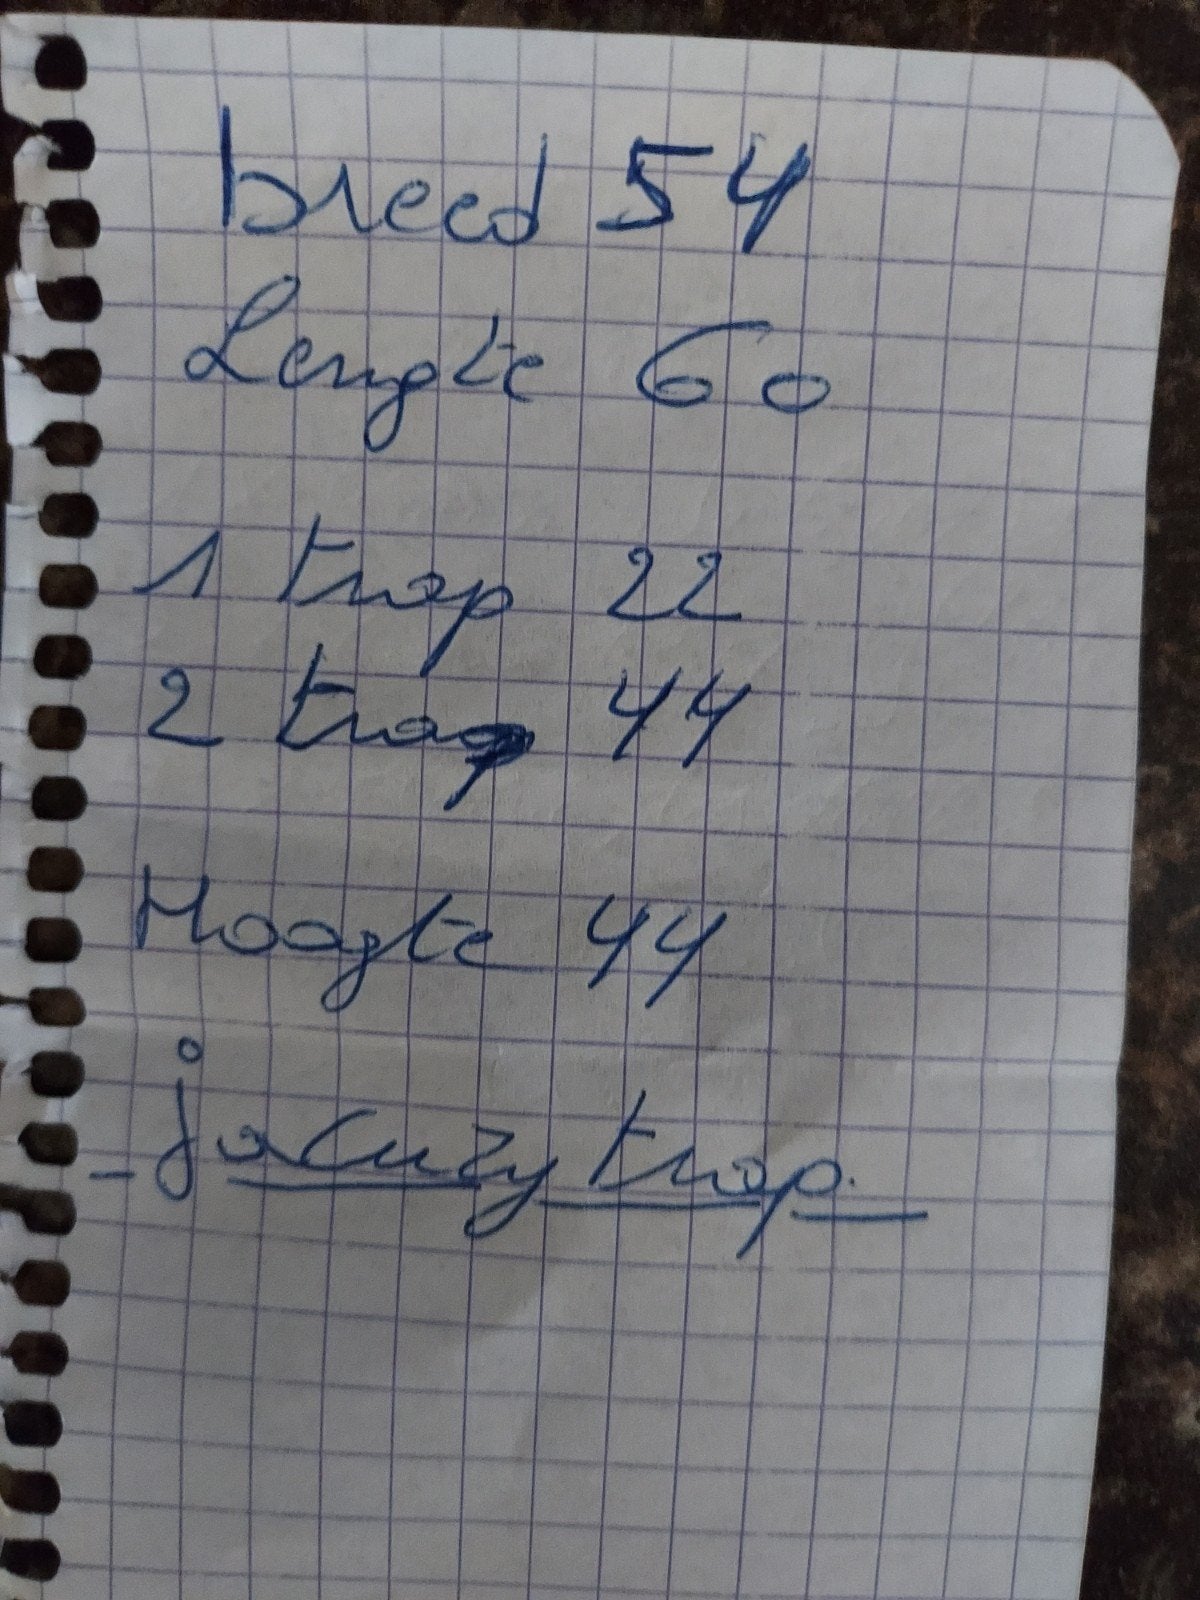 breed 54
Lengte 60
1 trap 22
2 trap 44
Hoogte 44
- jacuzy trap.